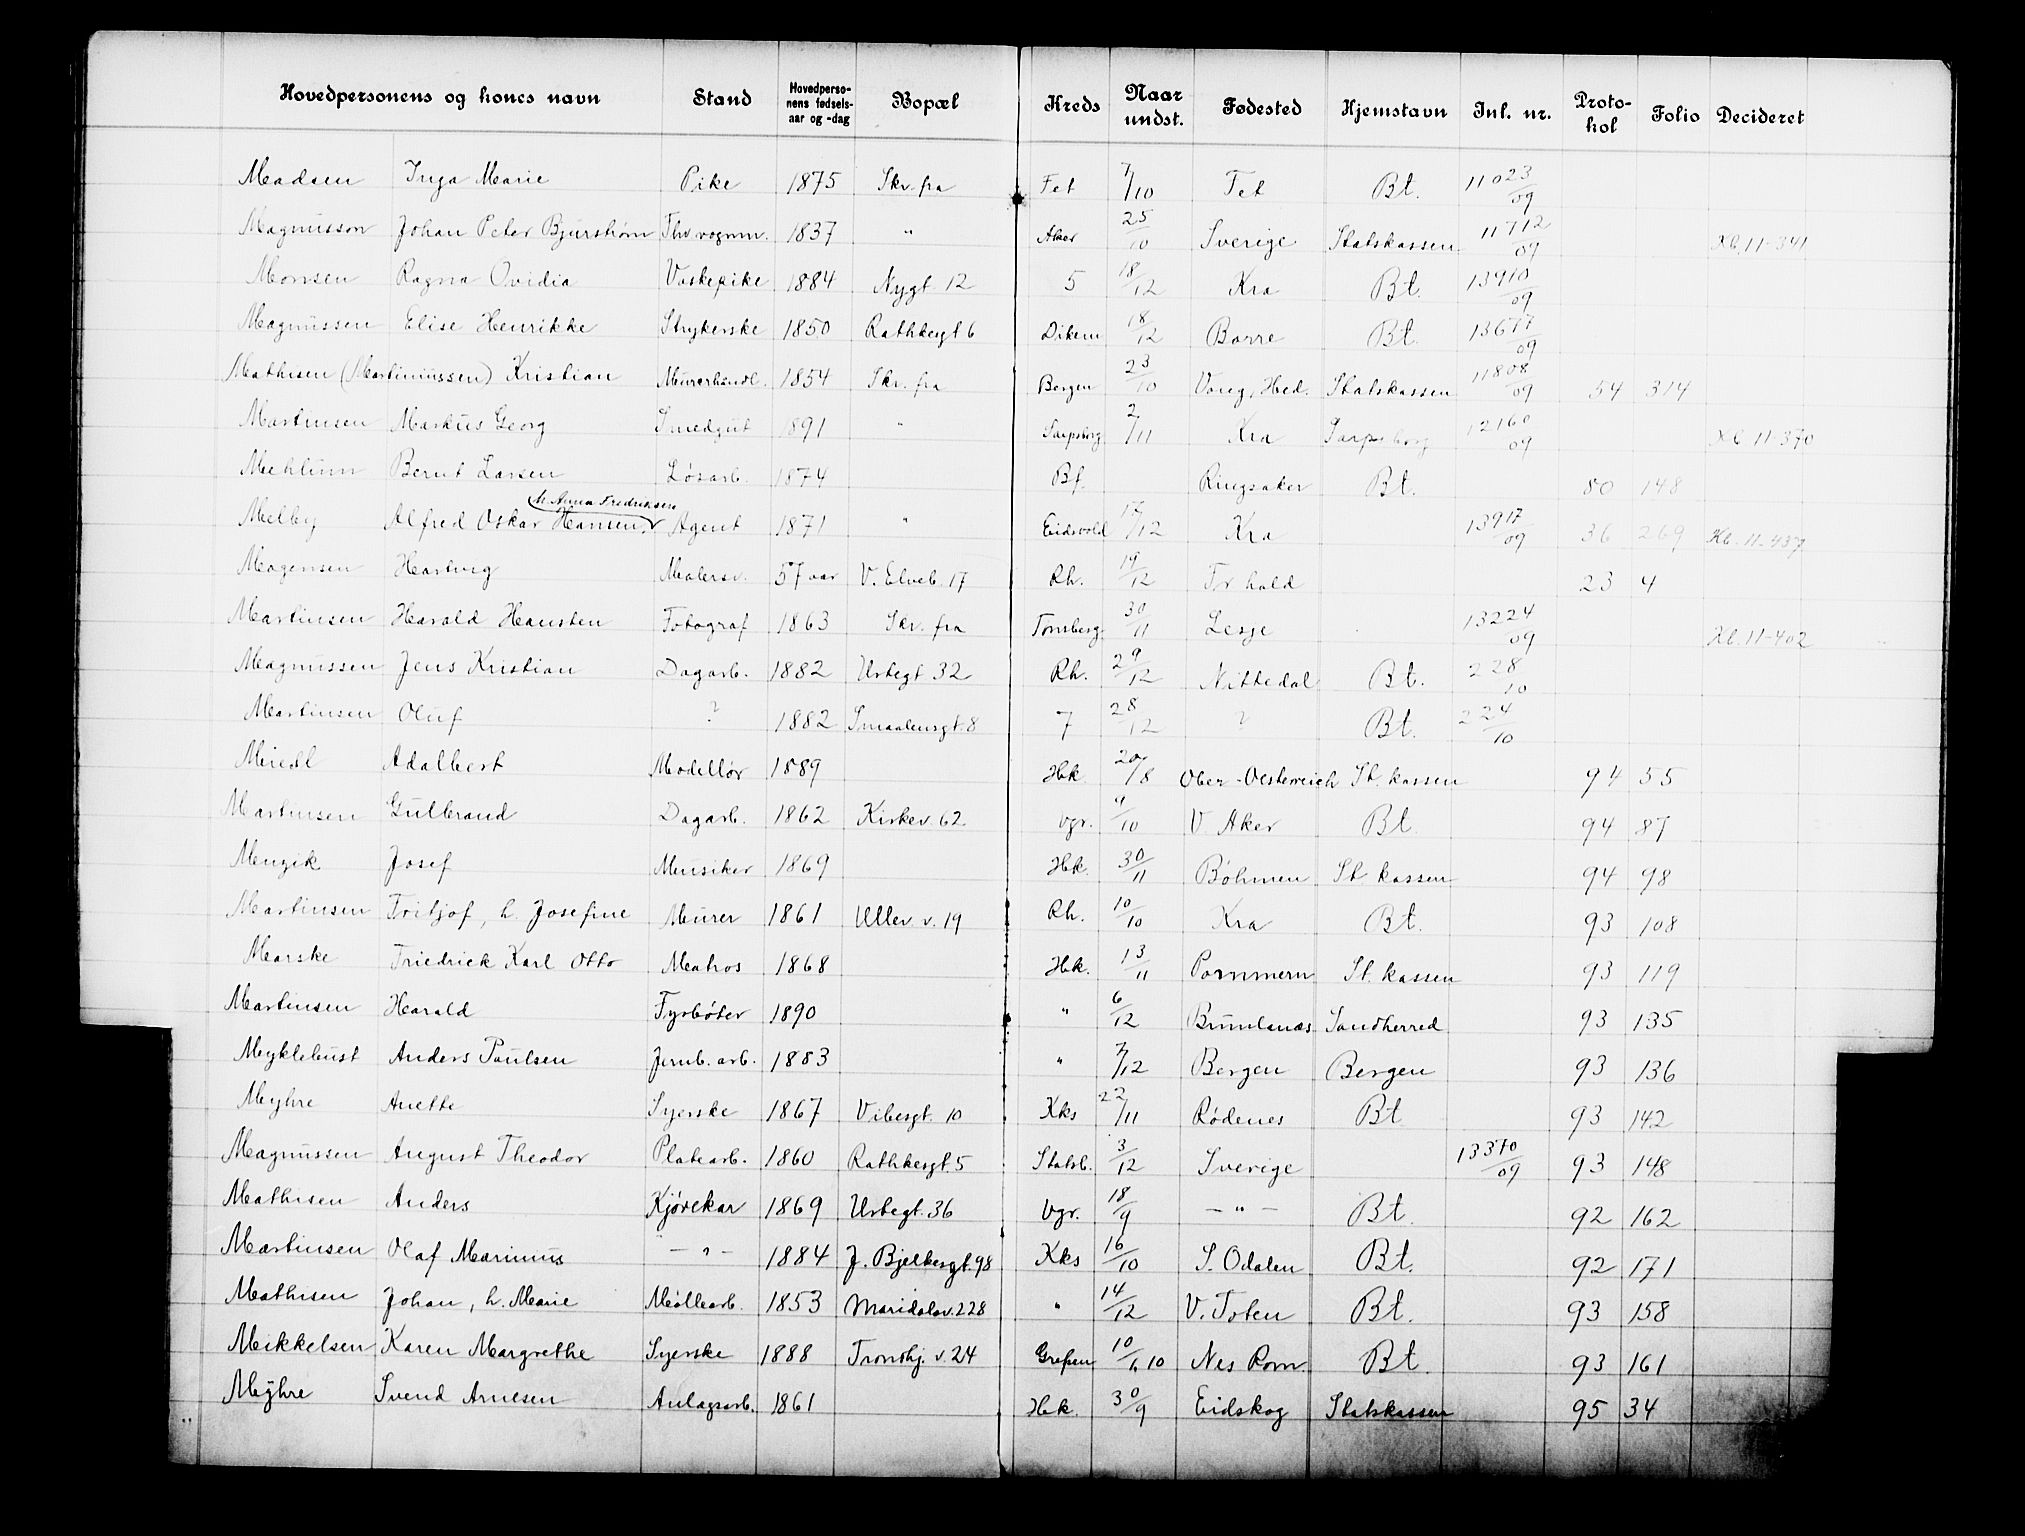 Hovedpersonens og kones navn Stand Hovedperso-nens fødsels-aar og -dag Bopæl Kreds Naar undst. Fødested Hjemstavn Inl. nr. Proto-kol Folio Decideret
Madsen Inga Marie Pike 1875 Skr. fra Fet 7/10 Fet Bt. 11023/09
Magnusson Johan Peter Bjurstrøm Fhv. vognm. 1837 " Aker 25/10 Sverige Statskassen 11712/09 Kb. 11-341
Monsen Ragna Ovidia Vaskepike 1884 Nygt 12 5 18/12 Kra Bt. 13910/09
Magnussen Elise Henrikke Strykerske 1850 Rathkesgt 6 Dikem 18/12 Borre Bt. 13677/09
Mathisen (Martiniussen) Kristian Murerhåndl. 1854 Skr. fra Bergen 23/10 Vang, Hed. Statskassen 11808/09 54 314
Martinsen Markus Georg Smedgut 1891 " Sarpsborg 2/11 Kra Sarpsborg 12160/09 Kb. 11-370
Mehlum Bernt Larsen Løsarb. 1874 Bf. Ringsaker Bt. 80 148
h. Anna Fredriksen
Melby Alfred Oskar Hansen, Agent 1871 " Eidsvold 17/12 Kra 13917/09 36 269 Kb. 11-437
Mogensen Hartvig Malersv. 57 aar V. Elveb. 17 Rh. 19/12 Fr hald 23 4
Martinsen Harald Hansten Fotograf 1863 Skr. fra Tønsberg. 30/11 Lesje 13224/09 Kb. 11-402
Magnussen Jens Kristian Dagarb. 1882 Urtegt. 32 Rh. 29/12 Nittedal Bt. 228/10
Martinsen Oluf ? 1882 Smaalensgt. 8 7 28/12 ? Bt. 224/10
Miedl Adalbert Modellør 1889 Hk. 20/8 Ober-Oesterreich St. kassen 94 55
Martinsen Gulbrand Dagarb. 1862 Kirkev. 62 Vgr. 9/10 V. Aker Bt. 94 87
Menzik Josef Musiker 1869 Hk. 30/11 Bøhmen St. kassen 94 98
Martinsen Fritjof, h. Josefine Murer 1861 Ullev. v. 19 Rh. 10/10 Kra Bt. 93 108
Marske Friedrick Karl Otto Matros 1868 Hk. 13/11 Pommern St. kassen 93 119
Martinsen Harald Fyrbøter 1890 " 6/12 Brunlanæs Sandherred 93 135
Myklebust Anders Paulsen Jernb. arb. 1883 " 7/12 Bergen Bergen 93 136
Myhre Anette Syerske 1867 Vibesgt. 10 Kks 22/11 Rødenes Bt 93 142
Magnussen August Theodor Platearb. 1860 Rathkesgt. 5 Statsb. 3/12 Sverige 13370/09 93 148
Mathisen Anders Kjørekar 1869 Urtegt. 36 Vgr. 18/9 — " — Bt. 92 162
Martinsen Olaf Marinius — " — 1884 J. Bjelkesgt. 98 Kks 16/10 S. Odalen Bt. 92 171
Mathisen Johan, h. Marie Møllearb. 1853 Maridalsv. 228 " 14/12 V. Toten Bt. 93 158
Mikkelsen Karen Margrethe Syerske 1888 Trondhj. v. 24 Grefsen 10/1 10 Nes Rom. Bt. 93 161
Myhre Svend Arnesen Anlagsarb. 1861 Hk. 30/9 Eidskog Statskassen 95 34